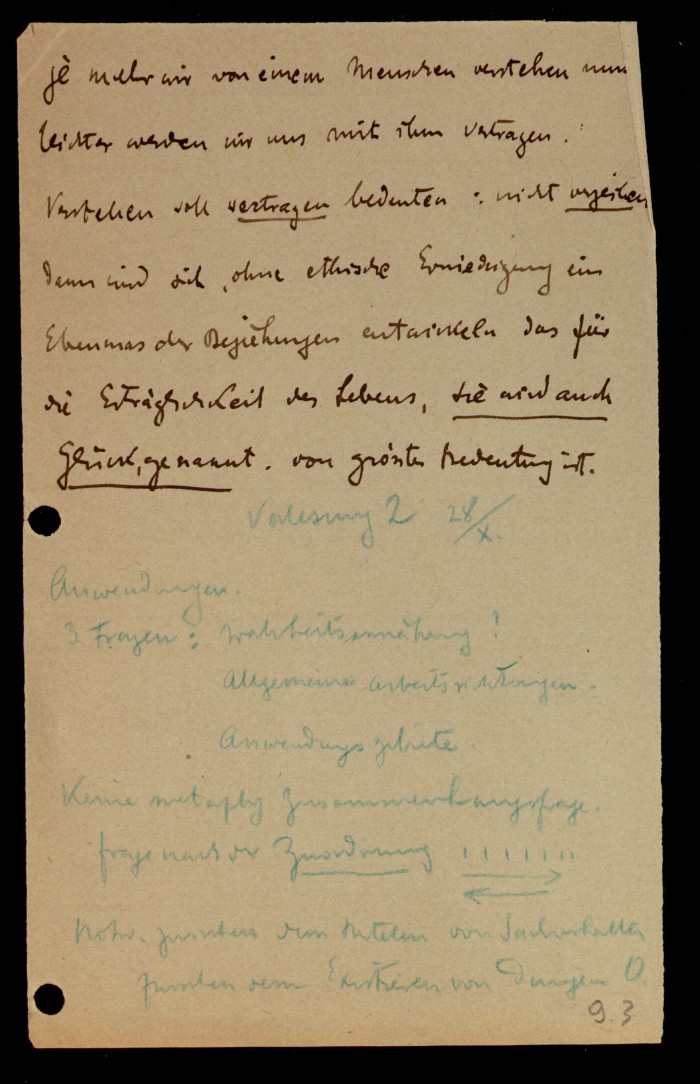 je mehr wir von einem Menschen verstehen um
leichter werden wir uns mit ihm vertragen.
Verstehen soll vertragen bedeuten: nicht verzeihen
Dann wird sich, ohne ethische Erniedrigung ein
Ebenmas der Beziehungen entwickeln das für
die Erträglichkeit des Lebens, sie wird auch
Glück, genannt. von grösster Bedeutung ist.
Vorlesung 2 28/X.
Anwendungen.
3 Fragen: Wahrheitsannäherung!
Allgemeine Arbeitsrichtungen.
Anwendungsgebiete.
Keine metaphy Zusammenhangsfrage.
Frage nach der Zuordnung
zwischen dem von Sachverhalten
zwischen dem Existieren von Dingen
9.3